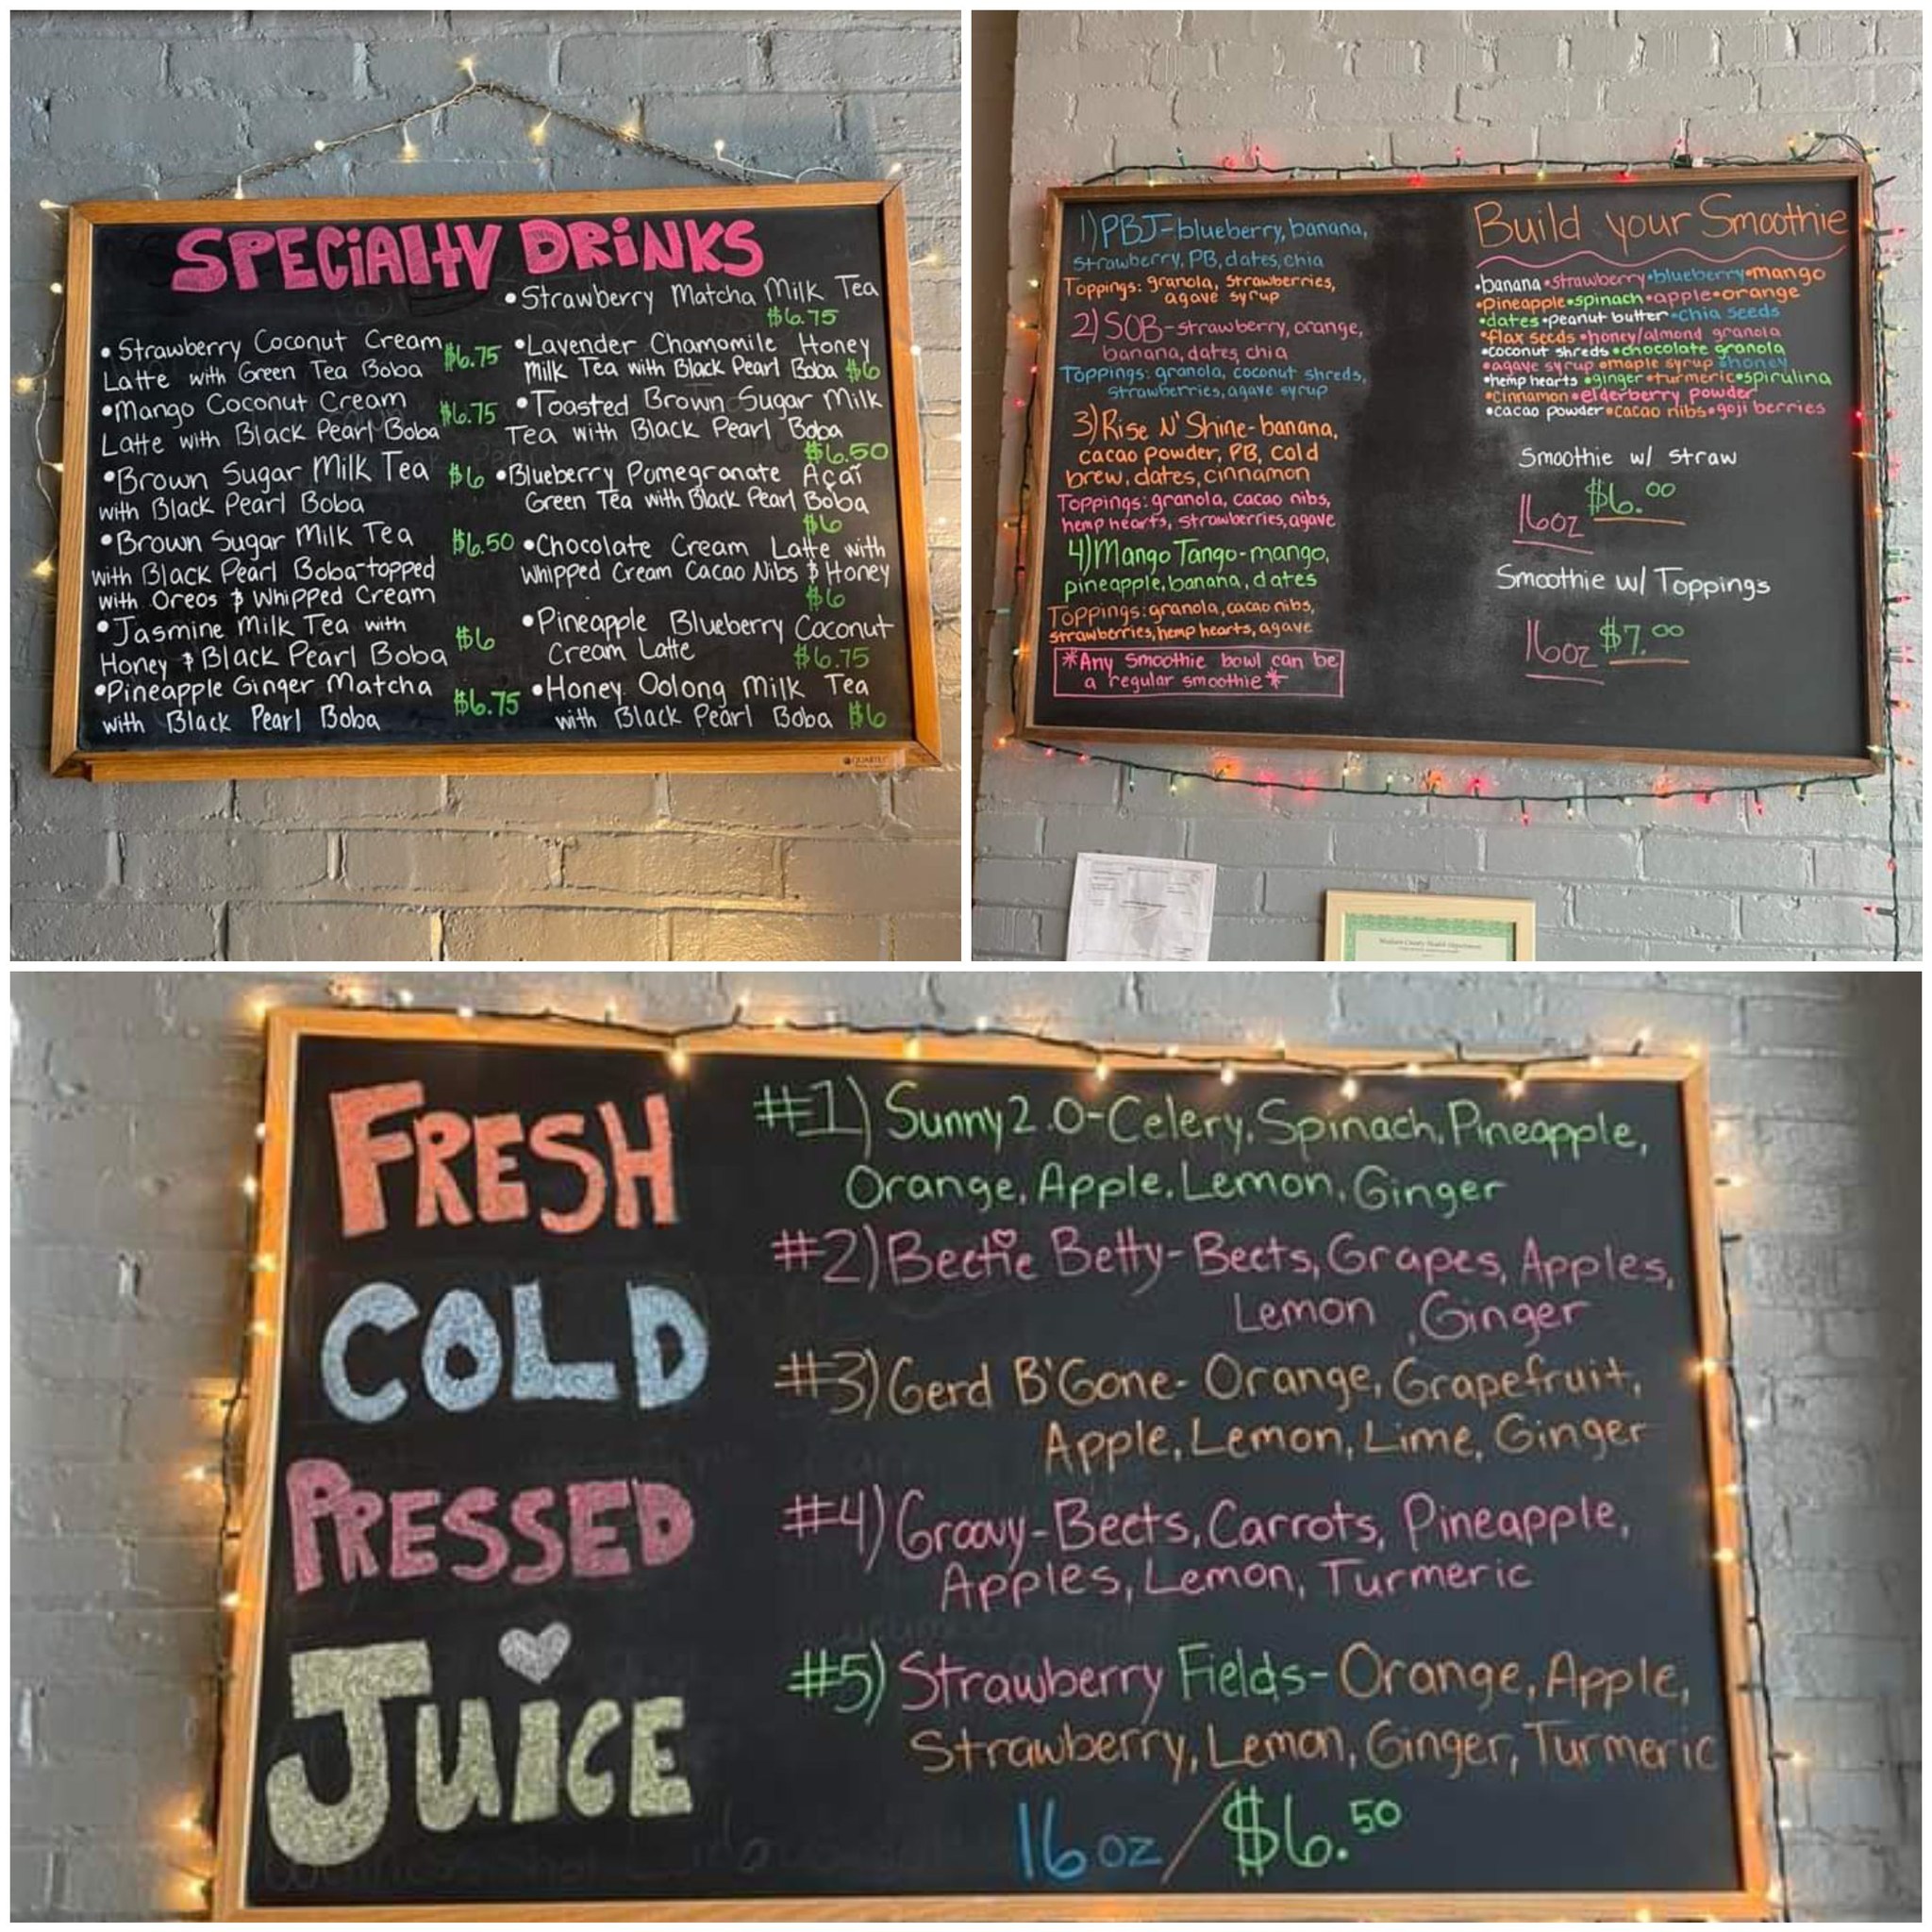 SPECIALTY DRINKS
• Strawberry Coconut Cream
Latte with Green Tea Boba $6.75
• Mango Coconut Cream
Latte with Black Pearl Boba $6.75
• Brown Sugar Milk Tea $6
with Black Pearl Boba
• Brown Sugar Milk Tea $6.50
with Black Pearl Boba-topped
with Oreos & Whipped Cream
• Jasmine Milk Tea with
Honey & Black Pearl Boba $6
• Pineapple Ginger Matcha
with Black Pearl Boba $6.75
• Strawberry Matcha Milk Tea
$6.75
• Lavender Chamomile Honey
Milk Tea with Black Pearl Boba $6
• Toasted Brown Sugar Milk
Tea with Black Pearl Boba
$6.50
• Blueberry Pomegranate Açaí
Green Tea with Black Pearl Boba
$6
• Chocolate Cream Latte with
Whipped Cream Cacao Nibs & Honey
$6
• Pineapple Blueberry Coconut
Cream Latte $6.75
• Honey Oolong Milk Tea
with Black Pearl Boba $6
QUARTET
1) PBJ-blueberry, banana,
strawberry, PB, dates, chia
Toppings: granola, strawberries,
agave syrup
2) SOB-strawberry, orange,
banana, dates, chia
Toppings: granola, coconut shreds,
strawberries, agave syrup
3) Rise N' Shine-banana,
cacao powder, PB, cold
brew, dates, cinnamon
Toppings: granola, cacao nibs,
hemp hearts, strawberries, agave
4) Mango Tango-mango,
pineapple, banana, dates
Toppings: granola, cacao nibs,
strawberries, hemp hearts, agave
*Any smoothie bowl can be
a regular smoothie*
Build your Smoothie
•banana•strawberry•blueberry•mango
•pineapple•spinach•apple•orange
•dates•peanut butter•chia seeds
•flax seeds•honey/almond granola
•coconut shreds•chocolate granola
•agave syrup•maple syrup•honey
•hemp hearts•ginger•turmeric•spirulina
•cinnamon•elderberry powder
•cacao powder•cacao nibs•goji berries
Smoothie w/ straw
16oz $6.00
Smoothie w/ Toppings
16oz $7.00
FRESH
COLD
PRESSED
JUICE
#1) Sunny 2.0-Celery, Spinach, Pineapple,
Orange, Apple, Lemon, Ginger
#2) Beetie Betty-Beets, Grapes, Apples,
Lemon, Ginger
#3) Gerd B'Gone- Orange, Grapefruit,
Apple, Lemon, Lime, Ginger
#4) Groovy-Beets, Carrots, Pineapple,
Apples, Lemon, Turmeric
#5) Strawberry Fields- Orange, Apple,
Strawberry, Lemon, Ginger, Turmeric
16oz/$6.50